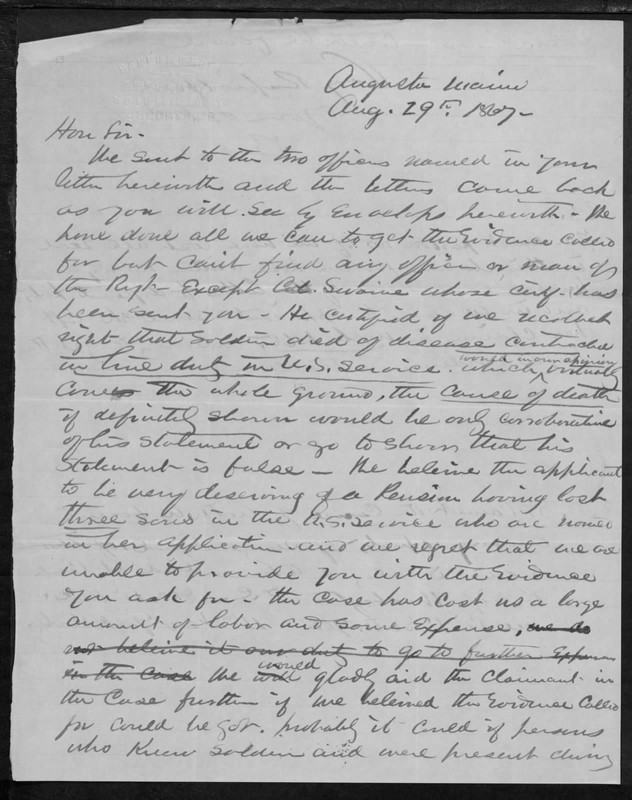 Augusta Maine
Aug. 29th 1867-
Hon Sir-
We sent to the two officers named in your
letter herewith and the letters come back
as you will see by Envelops herewith - We
have done all we can to get the Evidence called
for but can't find any officer or man of
the Regt- Except Col. Swaine whose cert. has
been sent you - He certified if we recollect
right that soldier died of disease contracted
in line duty in U.S. service. which would in our opinion virtually
covers the whole ground, the cause of death
if definitely shown would be only corroborative
of his statement or go to show that his
statement is false - We believe the applicant
to be very deserving of a Pension having lost
three sons in the U.S. service who are named
in her application and we regret that we are
unable to provide you with the Evidence
you ask for - the case has cost us a large
amount of labor and some Expense, we do
not believe it our duty to go to further Expense
in the case We would gladly aid the claimant in
the case further if we believed the Evidence called
for could be got. probably it could if persons
who knew soldier and were present during